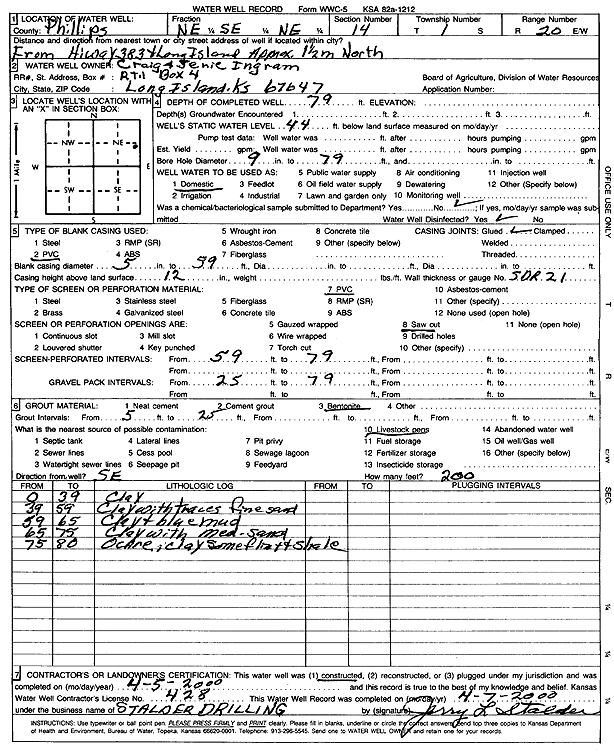 WATER WELL RECORD Form WWC-5 KSA 82a-1212
1 LOCATION OF WATER WELL: Fraction Section Number Township Number Range Number
County: Phillips NE ¼ SE ¼ NE ¼ 14 T 1 S R 20 E/W
Distance and direction from nearest town or city street address of well if located within city?
From Hiway 383 & Long Island Approx. 1½ m North
2 WATER WELL OWNER: Craig & Jenie Ingram
RR#, St. Address, Box # : Rt 1 Box 4 Board of Agriculture, Division of Water Resources
City, State, ZIP Code : Long Island, Ks 67647 Application Number:
3 LOCATE WELL'S LOCATION WITH AN "X" IN SECTION BOX:
N
NW NE
W E
SW SE
S
1 Mile
4 DEPTH OF COMPLETED WELL 79 ft. ELEVATION:
Depth(s) Groundwater Encountered 1. ft. 2. ft. 3. ft.
WELL'S STATIC WATER LEVEL 44 ft. below land surface measured on mo/day/yr
Pump test data: Well water was ft. after hours pumping gpm
Est. Yield gpm: Well water was ft. after hours pumping gpm
Bore Hole Diameter 9 in. to 79 ft., and in. to ft.
WELL WATER TO BE USED AS: 5 Public water supply 8 Air conditioning 11 Injection well
1 Domestic 3 Feedlot 6 Oil field water supply 9 Dewatering 12 Other (Specify below)
2 Irrigation 4 Industrial 7 Lawn and garden only 10 Monitoring well
Was a chemical/bacteriological sample submitted to Department? Yes No ✓; If yes, mo/day/yr sample was sub-
mitted Water Well Disinfected? Yes ✓ No
5 TYPE OF BLANK CASING USED: 5 Wrought iron 8 Concrete tile CASING JOINTS: Glued ✓ Clamped
1 Steel 3 RMP (SR) 6 Asbestos-Cement 9 Other (specify below) Welded
2 PVC 4 ABS 7 Fiberglass Threaded
Blank casing diameter 5 in. to 59 ft., Dia in. to ft., Dia in. to ft.
Casing height above land surface 12 in., weight lbs./ft. Wall thickness or gauge No. SDR 21
TYPE OF SCREEN OR PERFORATION MATERIAL: 7 PVC 10 Asbestos-cement
1 Steel 3 Stainless steel 5 Fiberglass 8 RMP (SR) 11 Other (specify)
2 Brass 4 Galvanized steel 6 Concrete tile 9 ABS 12 None used (open hole)
SCREEN OR PERFORATION OPENINGS ARE: 5 Gauzed wrapped 8 Saw cut 11 None (open hole)
1 Continuous slot 3 Mill slot 6 Wire wrapped 9 Drilled holes
2 Louvered shutter 4 Key punched 7 Torch cut 10 Other (specify)
SCREEN-PERFORATED INTERVALS: From 59 ft. to 79 ft., From ft. to ft.
From ft. to ft., From ft. to ft.
GRAVEL PACK INTERVALS: From 25 ft. to 79 ft., From ft. to ft.
From ft. to ft., From ft. to ft.
6 GROUT MATERIAL: 1 Neat cement 2 Cement grout 3 Bentonite 4 Other
Grout Intervals: From 5 ft. to 25 ft., From ft. to ft., From ft. to ft.
What is the nearest source of possible contamination: 10 Livestock pens 14 Abandoned water well
1 Septic tank 4 Lateral lines 7 Pit privy 11 Fuel storage 15 Oil well/Gas well
2 Sewer lines 5 Cess pool 8 Sewage lagoon 12 Fertilizer storage 16 Other (specify below)
3 Watertight sewer lines 6 Seepage pit 9 Feedyard 13 Insecticide storage
Direction from well? SE How many feet? 200
FROM TO LITHOLOGIC LOG FROM TO PLUGGING INTERVALS
0 39 Clay
39 59 Clay with traces fine sand
59 65 Clay & blue mud
65 75 Clay with med. sand
75 80 Ochre; clay some flat shale
7 CONTRACTOR'S OR LANDOWNER'S CERTIFICATION: This water well was (1) constructed, (2) reconstructed, or (3) plugged under my jurisdiction and was
completed on (mo/day/year) 4-5-2000 and this record is true to the best of my knowledge and belief. Kansas
Water Well Contractor's License No. 428 This Water Well Record was completed on (mo/day/yr) 4-7-2000
under the business name of STALDER DRILLING by (signature) Jerry L Stalder
INSTRUCTIONS: Use typewriter or ball point pen. PLEASE PRESS FIRMLY and PRINT clearly. Please fill in blanks, underline or circle the correct answers. Send top three copies to Kansas Department
of Health and Environment, Bureau of Water, Topeka, Kansas 66620-0001. Telephone: 913-296-5545. Send one to WATER WELL OWNER and retain one for your records.
OFFICE USE ONLY
T
R
E/W
SEC.
¼
¼
¼